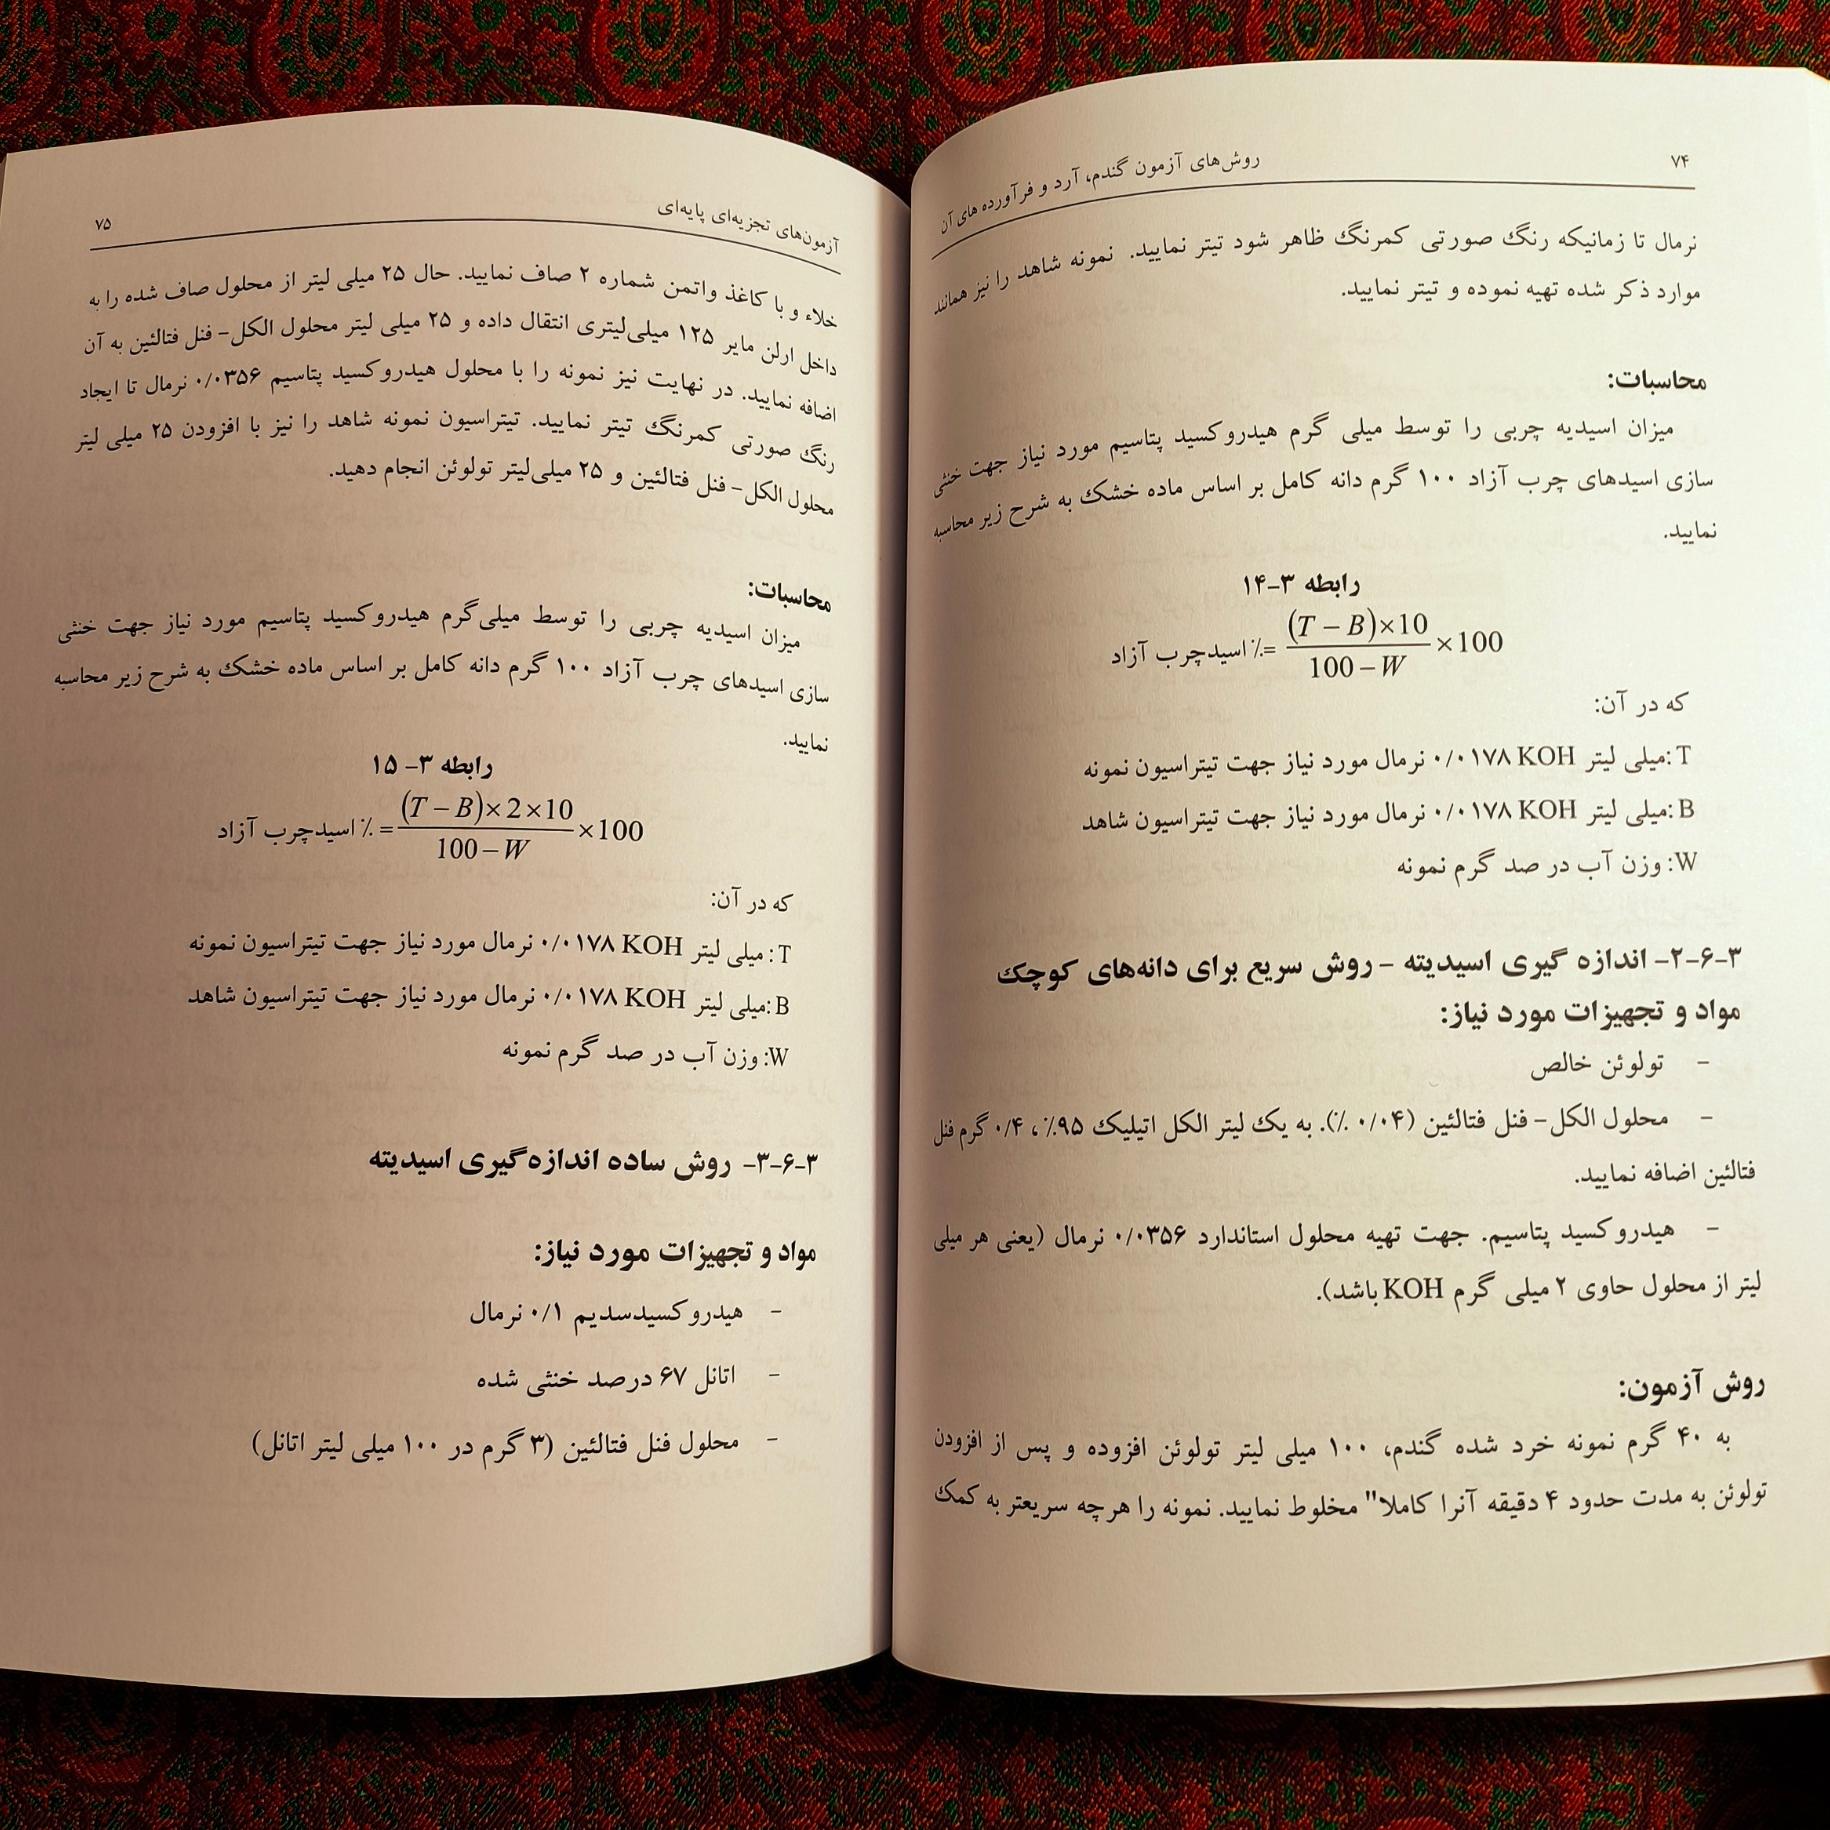 ۷۴
روش‌های آزمون گندم، آرد و فرآورده های آن
نرمال تا زمانیکه رنگ صورتی کمرنگ ظاهر شود تیتر نمایید. نمونه شاهد را نیز همانند
موارد ذکر شده تهیه نموده و تیتر نمایید.
محاسبات:
میزان اسیدیه چربی را توسط میلی گرم هیدروکسید پتاسیم مورد نیاز جهت خنثی
سازی اسیدهای چرب آزاد ۱۰۰ گرم دانه کامل بر اساس ماده خشک به شرح زیر محاسبه
نمایید.
رابطه ۳-۱۴
اسیدچرب آزاد ٪= (T – B)×10 / 100 – W ×100
که در آن:
T :میلی لیتر KOH ۰/۰۱۷۸ نرمال مورد نیاز جهت تیتراسیون نمونه
B :میلی لیتر KOH ۰/۰۱۷۸ نرمال مورد نیاز جهت تیتراسیون شاهد
W: وزن آب در صد گرم نمونه
۳-۶-۲- اندازه گیری اسیدیته - روش سریع برای دانه‌های کوچک
مواد و تجهیزات مورد نیاز:
- تولوئن خالص
- محلول الکل- فنل فتالئین (۰/۰۴ ٪). به یک لیتر الکل اتیلیک ۹۵٪، ۰/۴ گرم فنل
فتالئین اضافه نمایید.
- هیدروکسید پتاسیم. جهت تهیه محلول استاندارد ۰/۰۳۵۶ نرمال (یعنی هر میلی
لیتر از محلول حاوی ۲ میلی گرم KOH باشد).
روش آزمون:
به ۴۰ گرم نمونه خرد شده گندم، ۱۰۰ میلی لیتر تولوئن افزوده و پس از افزودن
تولوئن به مدت حدود ۴ دقیقه آنرا کاملا" مخلوط نمایید. نمونه را هرچه سریعتر به کمک
آزمون‌های تجزیه‌ای پایه‌ای
۷۵
خلاء و با کاغذ واتمن شماره ۲ صاف نمایید. حال ۲۵ میلی لیتر از محلول صاف شده را به
داخل ارلن مایر ۱۲۵ میلی‌لیتری انتقال داده و ۲۵ میلی لیتر محلول الکل- فنل فتالئین به آن
اضافه نمایید. در نهایت نیز نمونه را با محلول هیدروکسید پتاسیم ۰/۰۳۵۶ نرمال تا ایجاد
رنگ صورتی کمرنگ تیتر نمایید. تیتراسیون نمونه شاهد را نیز با افزودن ۲۵ میلی لیتر
محلول الکل- فنل فتالئین و ۲۵ میلی‌لیتر تولوئن انجام دهید.
محاسبات:
میزان اسیدیه چربی را توسط میلی‌گرم هیدروکسید پتاسیم مورد نیاز جهت خنثی
سازی اسیدهای چرب آزاد ۱۰۰ گرم دانه کامل بر اساس ماده خشک به شرح زیر محاسبه
نمایید.
رابطه ۳- ۱۵
اسیدچرب آزاد ٪ = (T – B)× 2 ×10 / 100 – W ×100
که در آن:
T : میلی لیتر KOH ۰/۰۱۷۸ نرمال مورد نیاز جهت تیتراسیون نمونه
B :میلی لیتر KOH ۰/۰۱۷۸ نرمال مورد نیاز جهت تیتراسیون شاهد
W: وزن آب در صد گرم نمونه
۳-۶-۳- روش ساده اندازه‌گیری اسیدیته
مواد و تجهیزات مورد نیاز:
- هیدروکسیدسدیم ۰/۱ نرمال
- اتانل ۶۷ درصد خنثی شده
- محلول فنل فتالئین (۳ گرم در ۱۰۰ میلی لیتر اتانل)